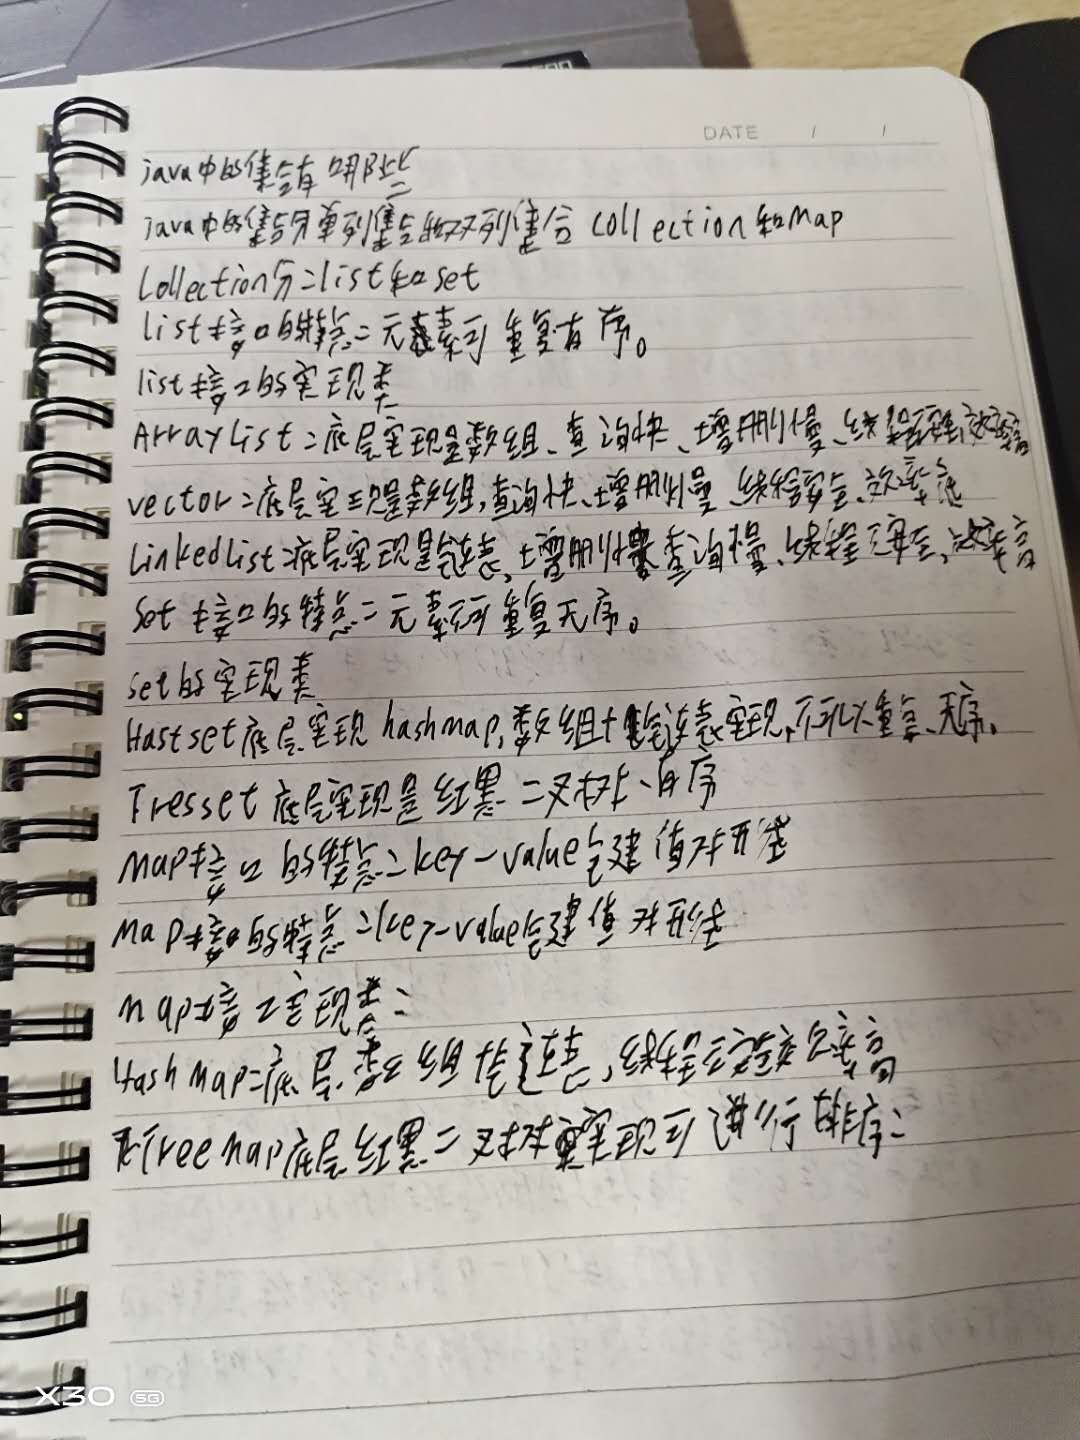 DATE / /
java中的集合有哪些
java中的集合分单列集合和双列集合 collection和map
Collection分：list和set
list接口的特点：元素可重复有序。
list接口的实现类
ArrayList：底层实现是数组、查询快、增删慢、线程
vector：底层实现是数组,查询快、增删慢、线程安全、效率低
LinkedList：底层实现是链表,增删快查询慢、线程不安全,效率高
Set接口的特点：元素 重复无序。
set的实现类
Hastset底层实现hashmap,数组+链表实现,不可以重复、无序。
Tresset底层实现是红黑二叉树、有序
Map接口的特点：key-value 键值对形
Map接口的特点：key-value 键值对形
map接口实现类：
HashMap：底层
TreeMap底层红黑二叉树实现 进行排序：
X30 5G